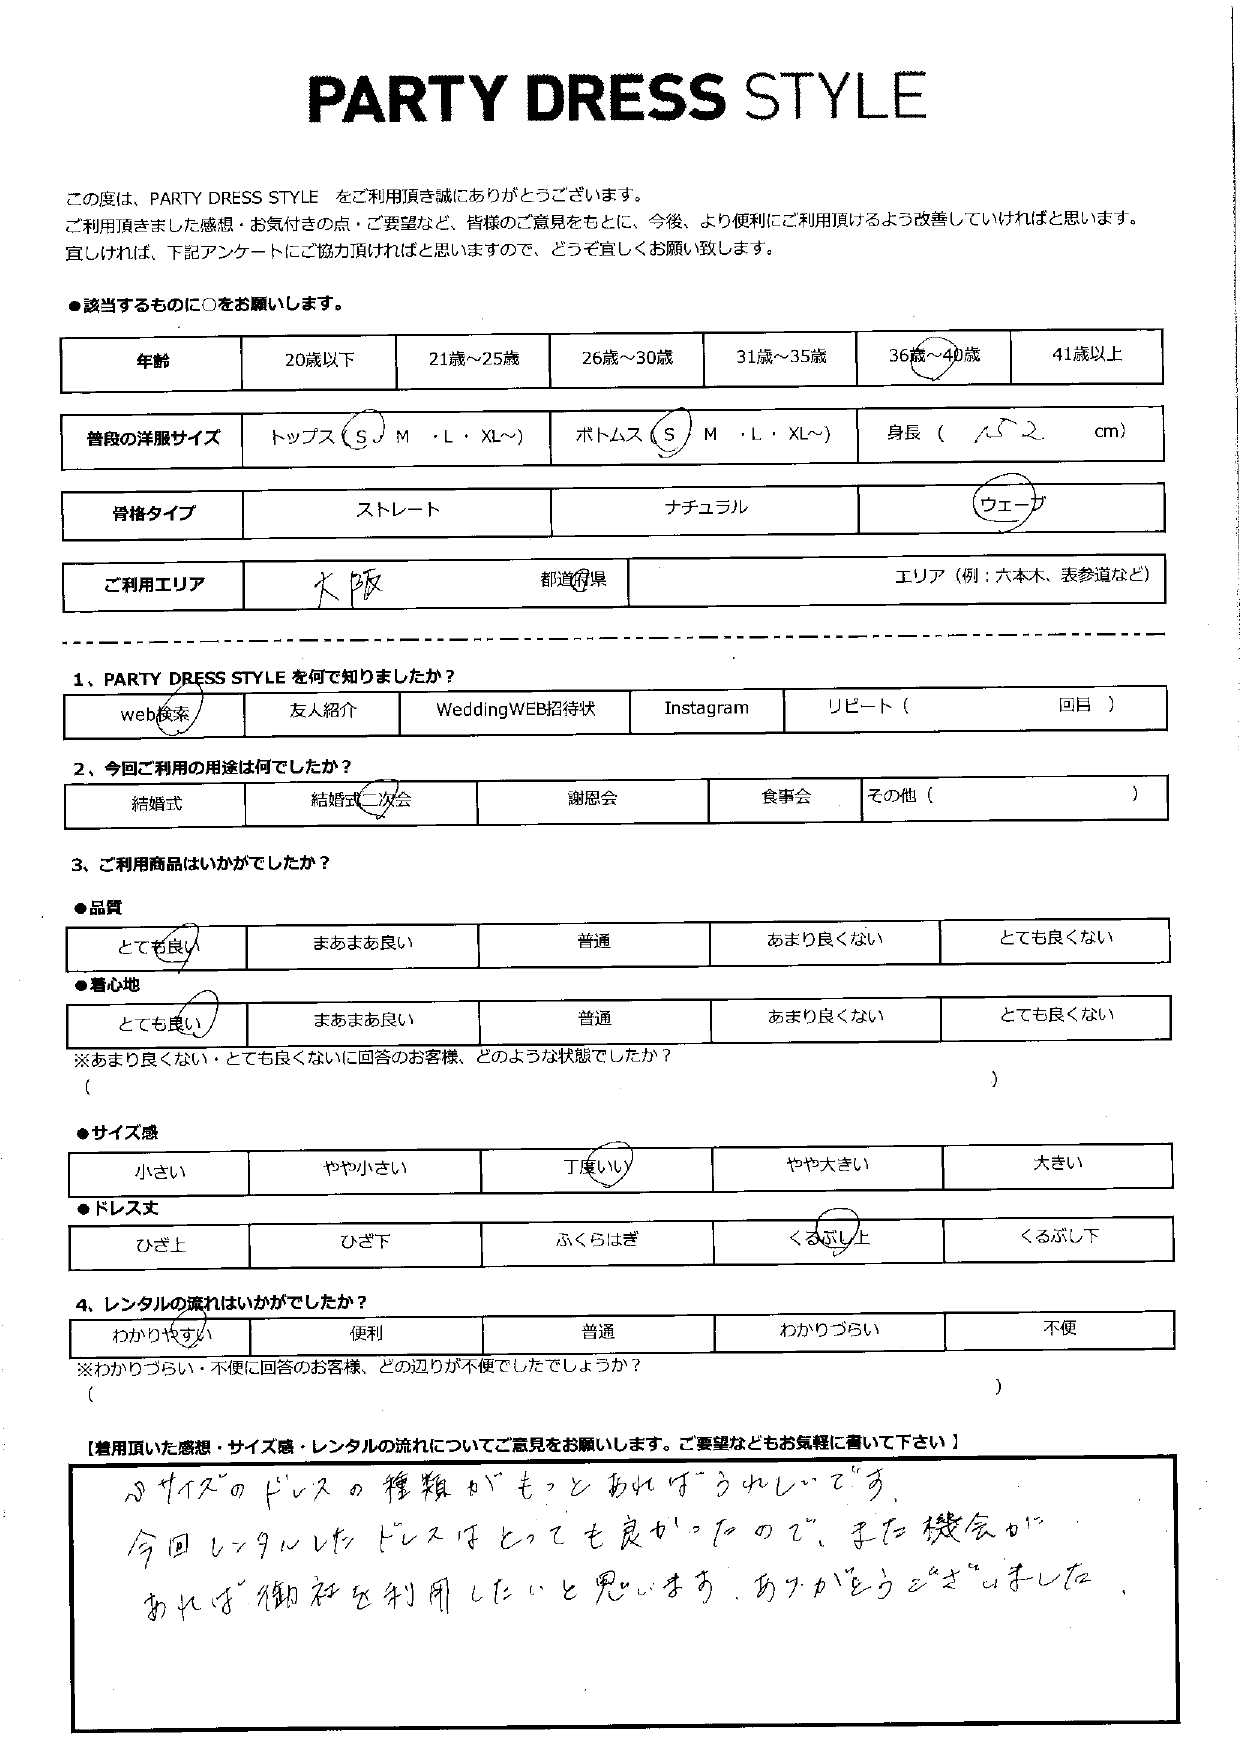 PARTY DRESS STYLE
この度は、PARTY DRESS STYLE をご利用頂き誠にありがとうございます。
ご利用頂きました感想・お気付きの点・ご要望など、皆様のご意見をもとに、今後、より便利にご利用頂けるよう改善していければと思います。
宜しければ、下記アンケートにご協力頂ければと思いますので、どうぞ宜しくお願い致します。
●該当するものに○をお願いします。
年齢 20歳以下 21歳～25歳 26歳～30歳 31歳～35歳 36歳～40歳 41歳以上
普段の洋服サイズ トップス(S ・ M ・L・ XL～) ボトムス(S ・ M ・L・ XL～) 身長 ( 152 cm)
骨格タイプ ストレート ナチュラル ウェーブ
ご利用エリア 大阪 都道府県 エリア（例：六本木、表参道など）
1、PARTY DRESS STYLE を何で知りましたか？
web検索 友人紹介 WeddingWEB招待状 Instagram リピート（ 回目 ）
2、今回ご利用の用途は何でしたか？
結婚式 結婚式二次会 謝恩会 食事会 その他（ ）
3、ご利用商品はいかがでしたか？
●品質
とても良い まあまあ良い 普通 あまり良くない とても良くない
●着心地
とても良い まあまあ良い 普通 あまり良くない とても良くない
※あまり良くない・とても良くないに回答のお客様、どのような状態でしたか？
( )
●サイズ感
小さい やや小さい 丁度いい やや大きい 大きい
●ドレス丈
ひざ上 ひざ下 ふくらはぎ くるぶし上 くるぶし下
4、レンタルの流れはいかがでしたか？
わかりやすい 便利 普通 わかりづらい 不便
※わかりづらい・不便に回答のお客様、どの辺りが不便でしたでしょうか？
( )
【着用頂いた感想・サイズ感・レンタルの流れについてご意見をお願いします。ご要望などもお気軽に書いて下さい 】
Sサイズのドレスの種類がもっとあればうれしいです。
今回レンタルしたドレスはとっても良かったので、また機会が
あれば御社を利用したいと思います。ありがとうございました。